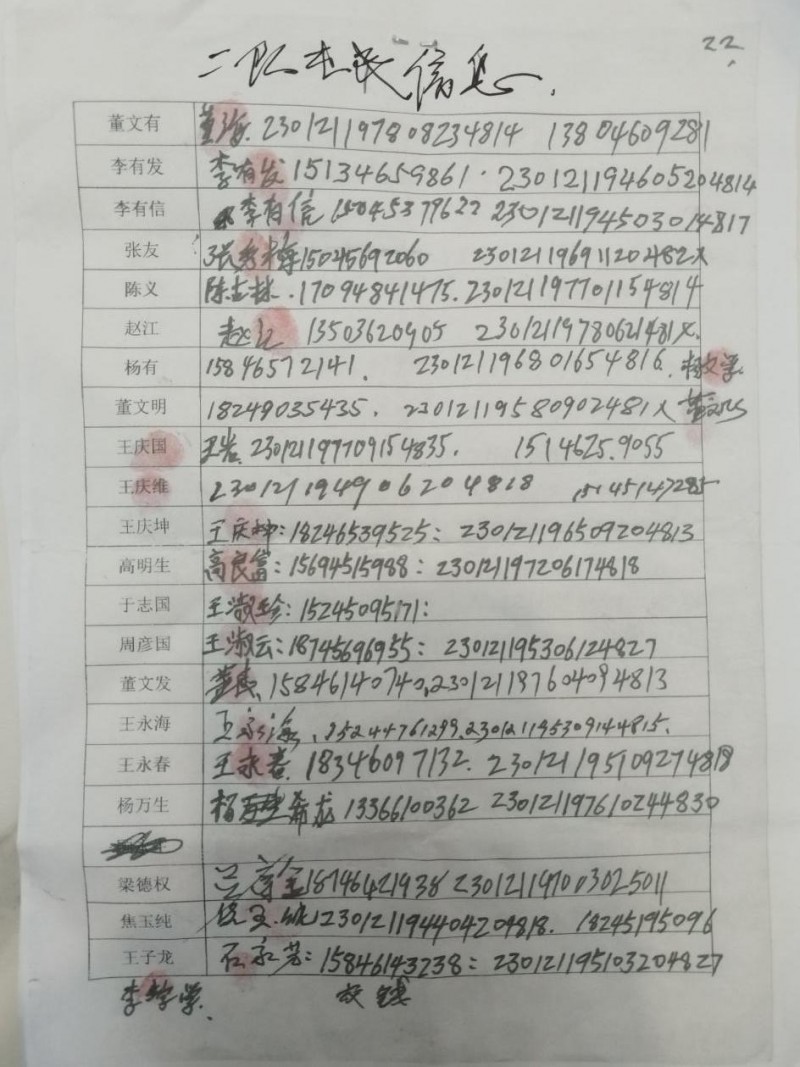 22
二队村民信息
董文有 董海 230121197808234814 13804609281
李有发 李有发 15134659861 230121194605204814
李有信 李有信 15045379622 230121194503014817
张友 15045692060 23012119691120482X
陈义 17094841475 230121197701154814
赵江 赵江 13503620905 23012119780621481X
杨有 15846572141 230121196801654816 杨文学
董文明 18249035435 23012119580902481X
王庆国 王岩 230121197709154835 15146259055
王庆维 230121194906204818 15145147285
王庆坤 王庆坤：18246539525：230121196509204813
高明生 高良富：15694515988：230121197206174818
于志国 王淑珍：15245095171：
周彦国 王淑云：18745696955：230121195306124827
董文发 15846140740 230121197604094813
王永海 王永海 230121195309144815
王永春 王永春 18346097132 230121195109274818
杨万生 希龙 13366100362 230121197610244830
梁德权 18746421938
焦玉纯 230121194404204818 18245195096
王子龙 石永芳：15846143238：230121195103204827